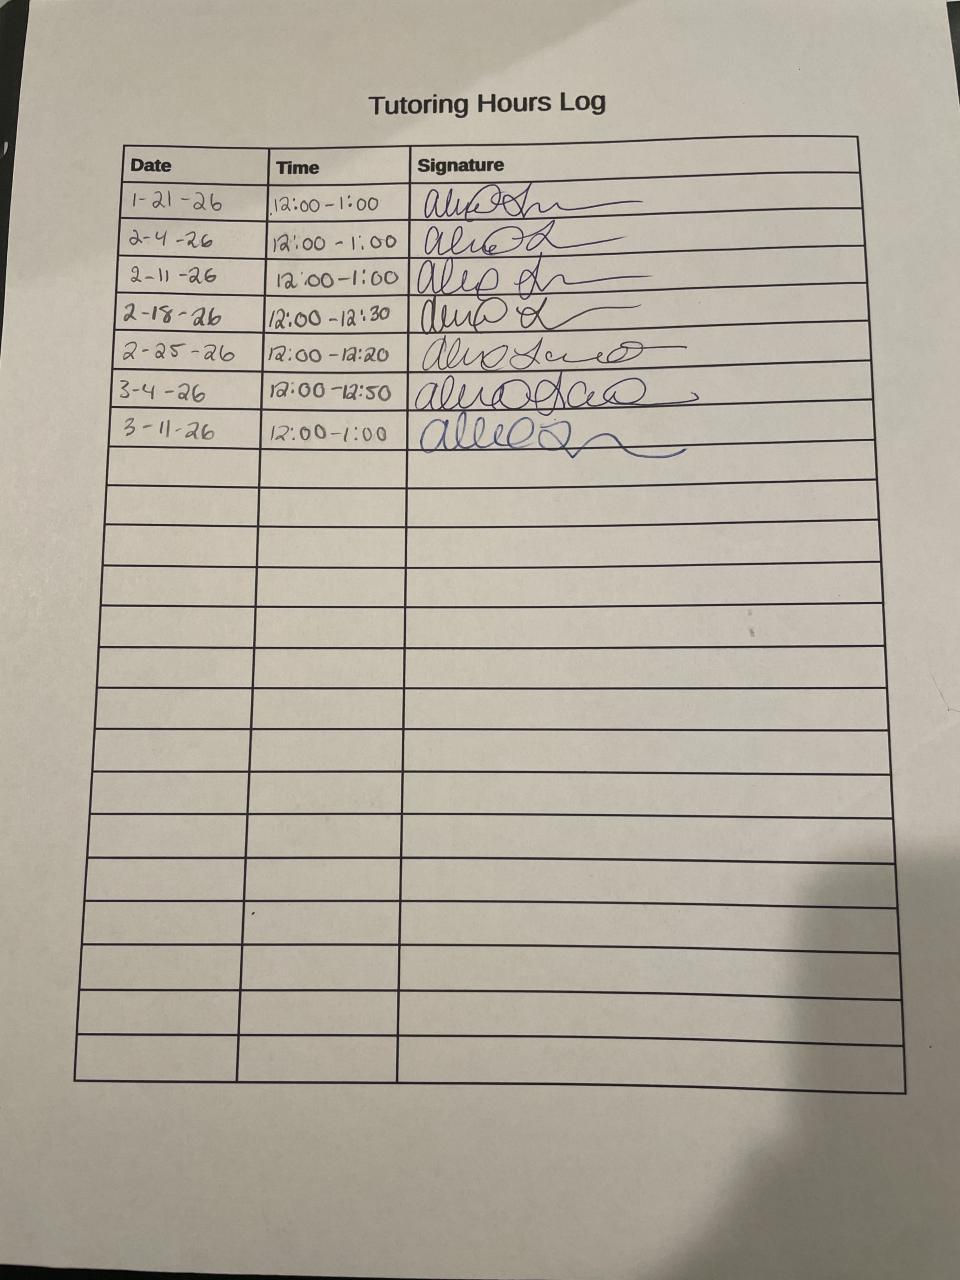 Tutoring Hours Log
Date Time Signature
1-21-26 12:00-1:00
2-4-26 12:00-1:00
2-11-26 12:00-1:00
2-18-26 12:00-12:30
2-25-26 12:00-12:20
3-4-26 12:00-12:50
3-11-26 12:00-1:00